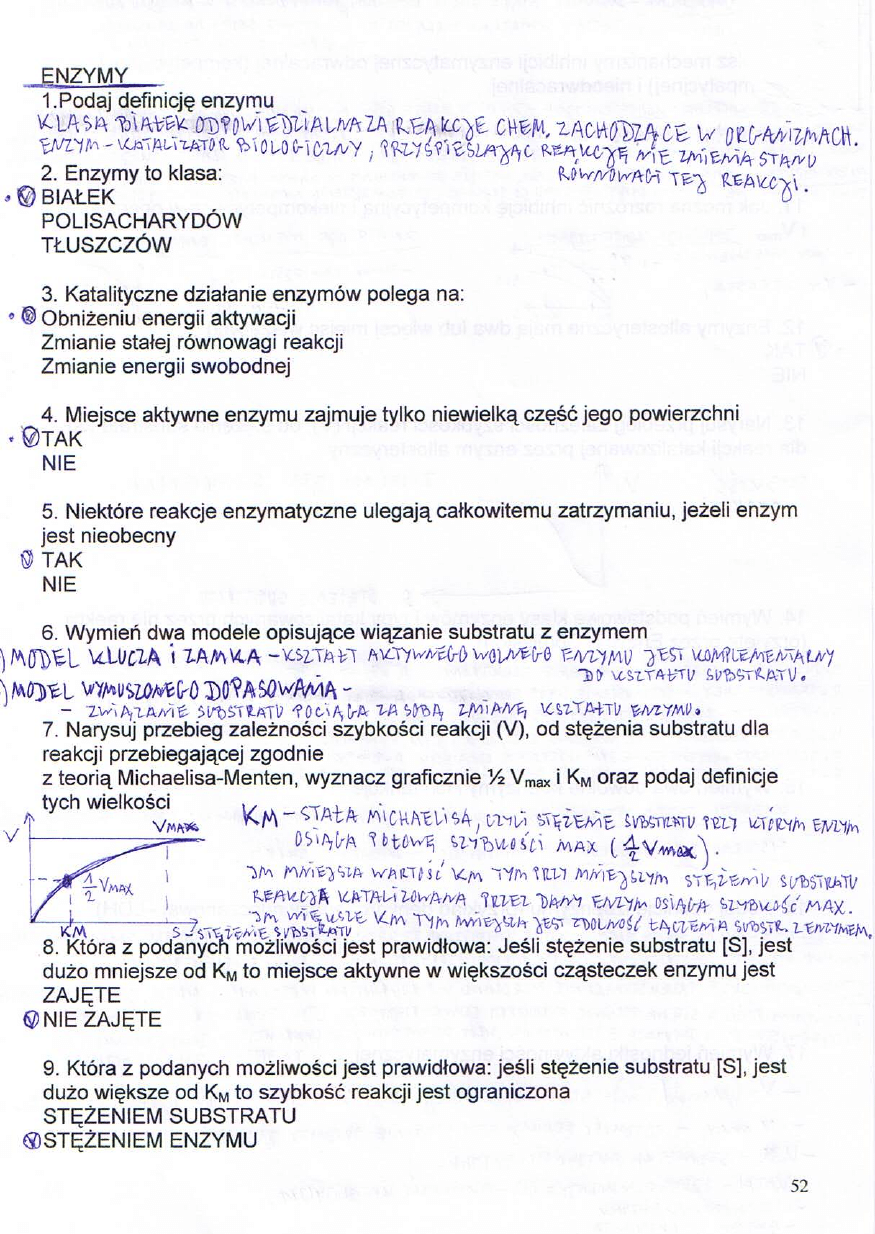 ENZYMY
1.Podaj definicję enzymu
KLASA BIAŁEK ODPOWIEDZIALNA ZA REAKCJE CHEM. ZACHODZĄCE W ORGANIZMACH.
ENZYM - KATALIZATOR BIOLOGICZNY, PRZYŚPIESZAJĄC REAKCJĘ NIE ZMIENIA STANU
RÓWNOWAGI TEJ REAKCJI.
2. Enzymy to klasa:
BIAŁEK
POLISACHARYDÓW
TŁUSZCZÓW
3. Katalityczne działanie enzymów polega na:
Obniżeniu energii aktywacji
Zmianie stałej równowagi reakcji
Zmianie energii swobodnej
4. Miejsce aktywne enzymu zajmuje tylko niewielką część jego powierzchni
TAK
NIE
5. Niektóre reakcje enzymatyczne ulegają całkowitemu zatrzymaniu, jeżeli enzym
jest nieobecny
TAK
NIE
6. Wymień dwa modele opisujące wiązanie substratu z enzymem
) MODEL KLUCZA i ZAMKA - KSZTAŁT AKTYWNEGO WOLNEGO ENZYMU JEST KOMPLEMENTARNY
DO KSZTAŁTU SUBSTRATU.
) MODEL WYMUSZONEGO DOPASOWANIA -
- ZWIĄZANIE SUBSTRATU POCIĄGA ZA SOBĄ ZMIANĘ KSZTAŁTU ENZYMU.
7. Narysuj przebieg zależności szybkości reakcji (V), od stężenia substratu dla
reakcji przebiegającej zgodnie
z teorią Michaelisa-Menten, wyznacz graficznie ½ Vmax i KM oraz podaj definicje
tych wielkości
V
VMAX
1/2 VMAX
KM
S - STĘŻENIE SUBSTRATU
KM - STAŁA MICHAELISA, CZYLI STĘŻENIE SUBSTRATU PRZY KTÓRYM ENZYM
OSIĄGA POŁOWĘ SZYBKOŚCI MAX (1/2 Vmax).
IM MNIEJSZA WARTOŚĆ KM TYM PRZY MNIEJSZYM STĘŻENIU SUBSTRATU
REAKCJA KATALIZOWANA PRZEZ DANY ENZYM OSIĄGA SZYBKOŚĆ MAX.
IM WIĘKSZE KM TYM MNIEJSZA JEST ZDOLNOŚĆ ŁĄCZENIA SUBSTR. Z ENZYMEM.
8. Która z podanych możliwości jest prawidłowa: Jeśli stężenie substratu [S], jest
dużo mniejsze od KM to miejsce aktywne w większości cząsteczek enzymu jest
ZAJĘTE
NIE ZAJĘTE
9. Która z podanych możliwości jest prawidłowa: jeśli stężenie substratu [S], jest
dużo większe od KM to szybkość reakcji jest ograniczona
STĘŻENIEM SUBSTRATU
STĘŻENIEM ENZYMU
52